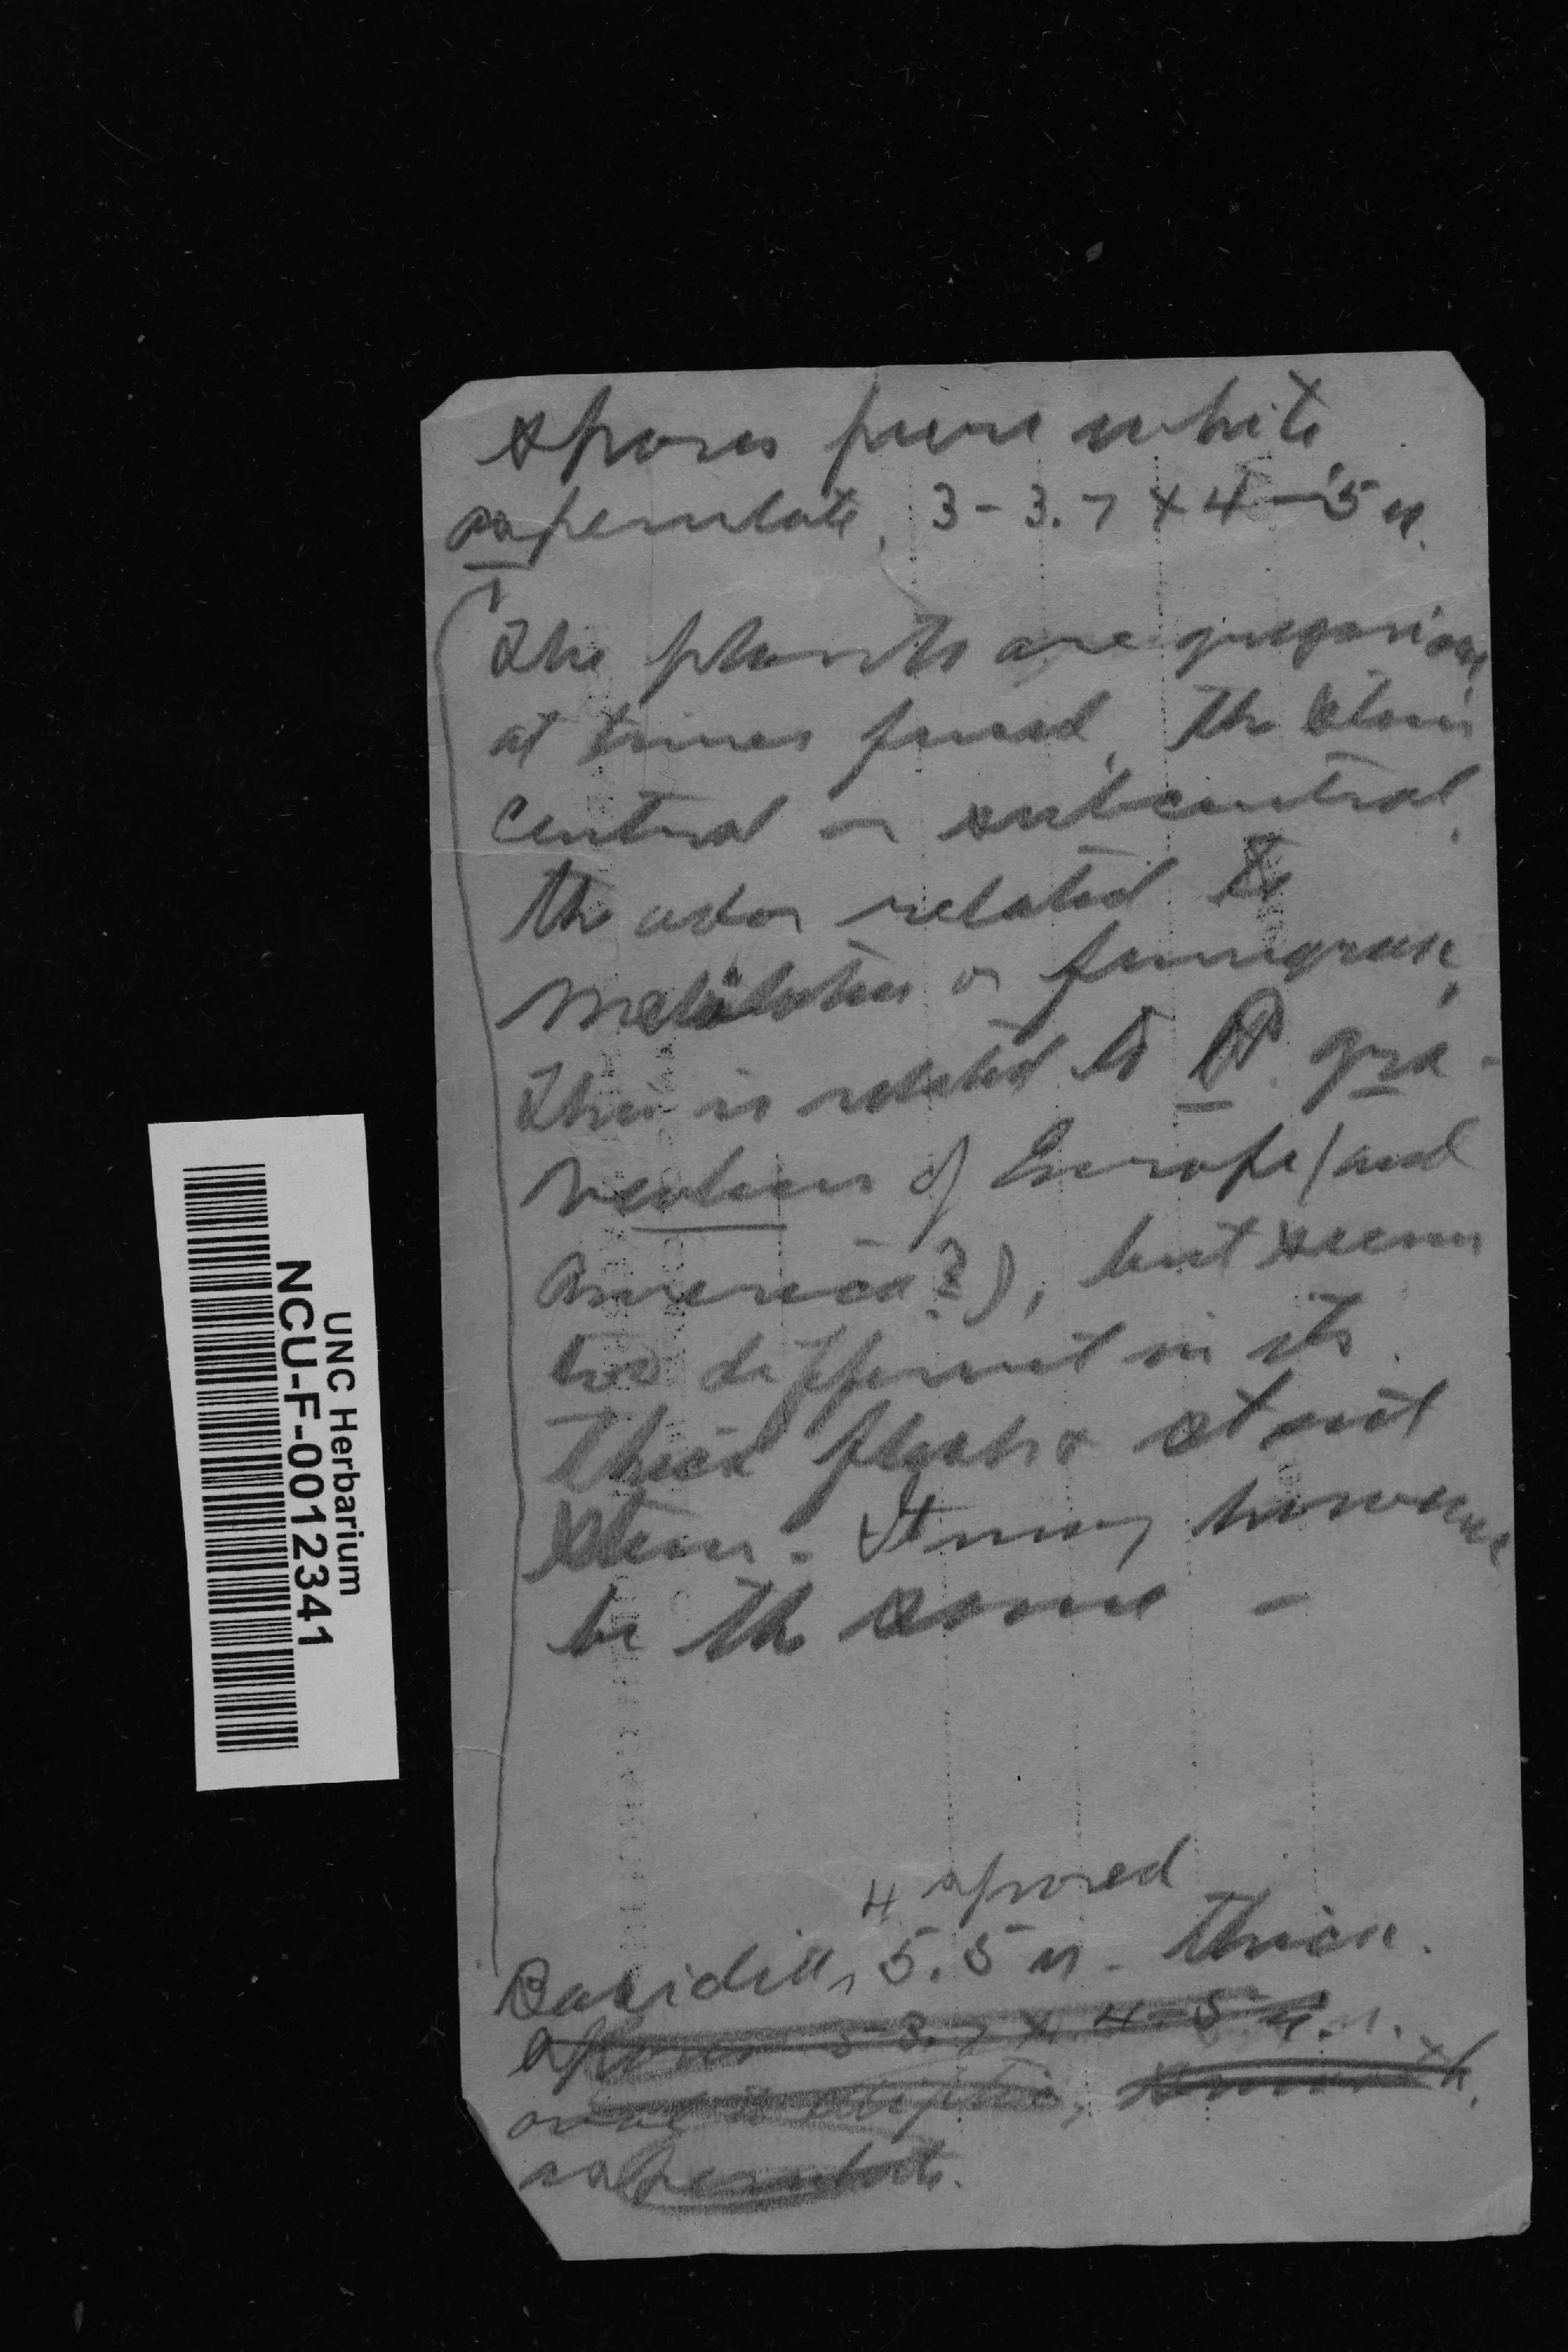 Spores pure white,
asperulate, 3 - 3.7 x 4 - 5 µ.
The plants are gregarious
at times fused, the stem
central or subcentral,
the odor related to
Melilotus or fenugreek,
This is related to P. gra-
veolens of Europe (and
America?), but seems
too different in its
thick flesh & stout
stem. It may however
be the same -
4 spored
Basidia, 5.5 µ. thick.
Spores 3-3.7 x 4-5 µ.
oval to elliptic, smooth,
asperulate.
UNC Herbarium
NCU-F-0012341